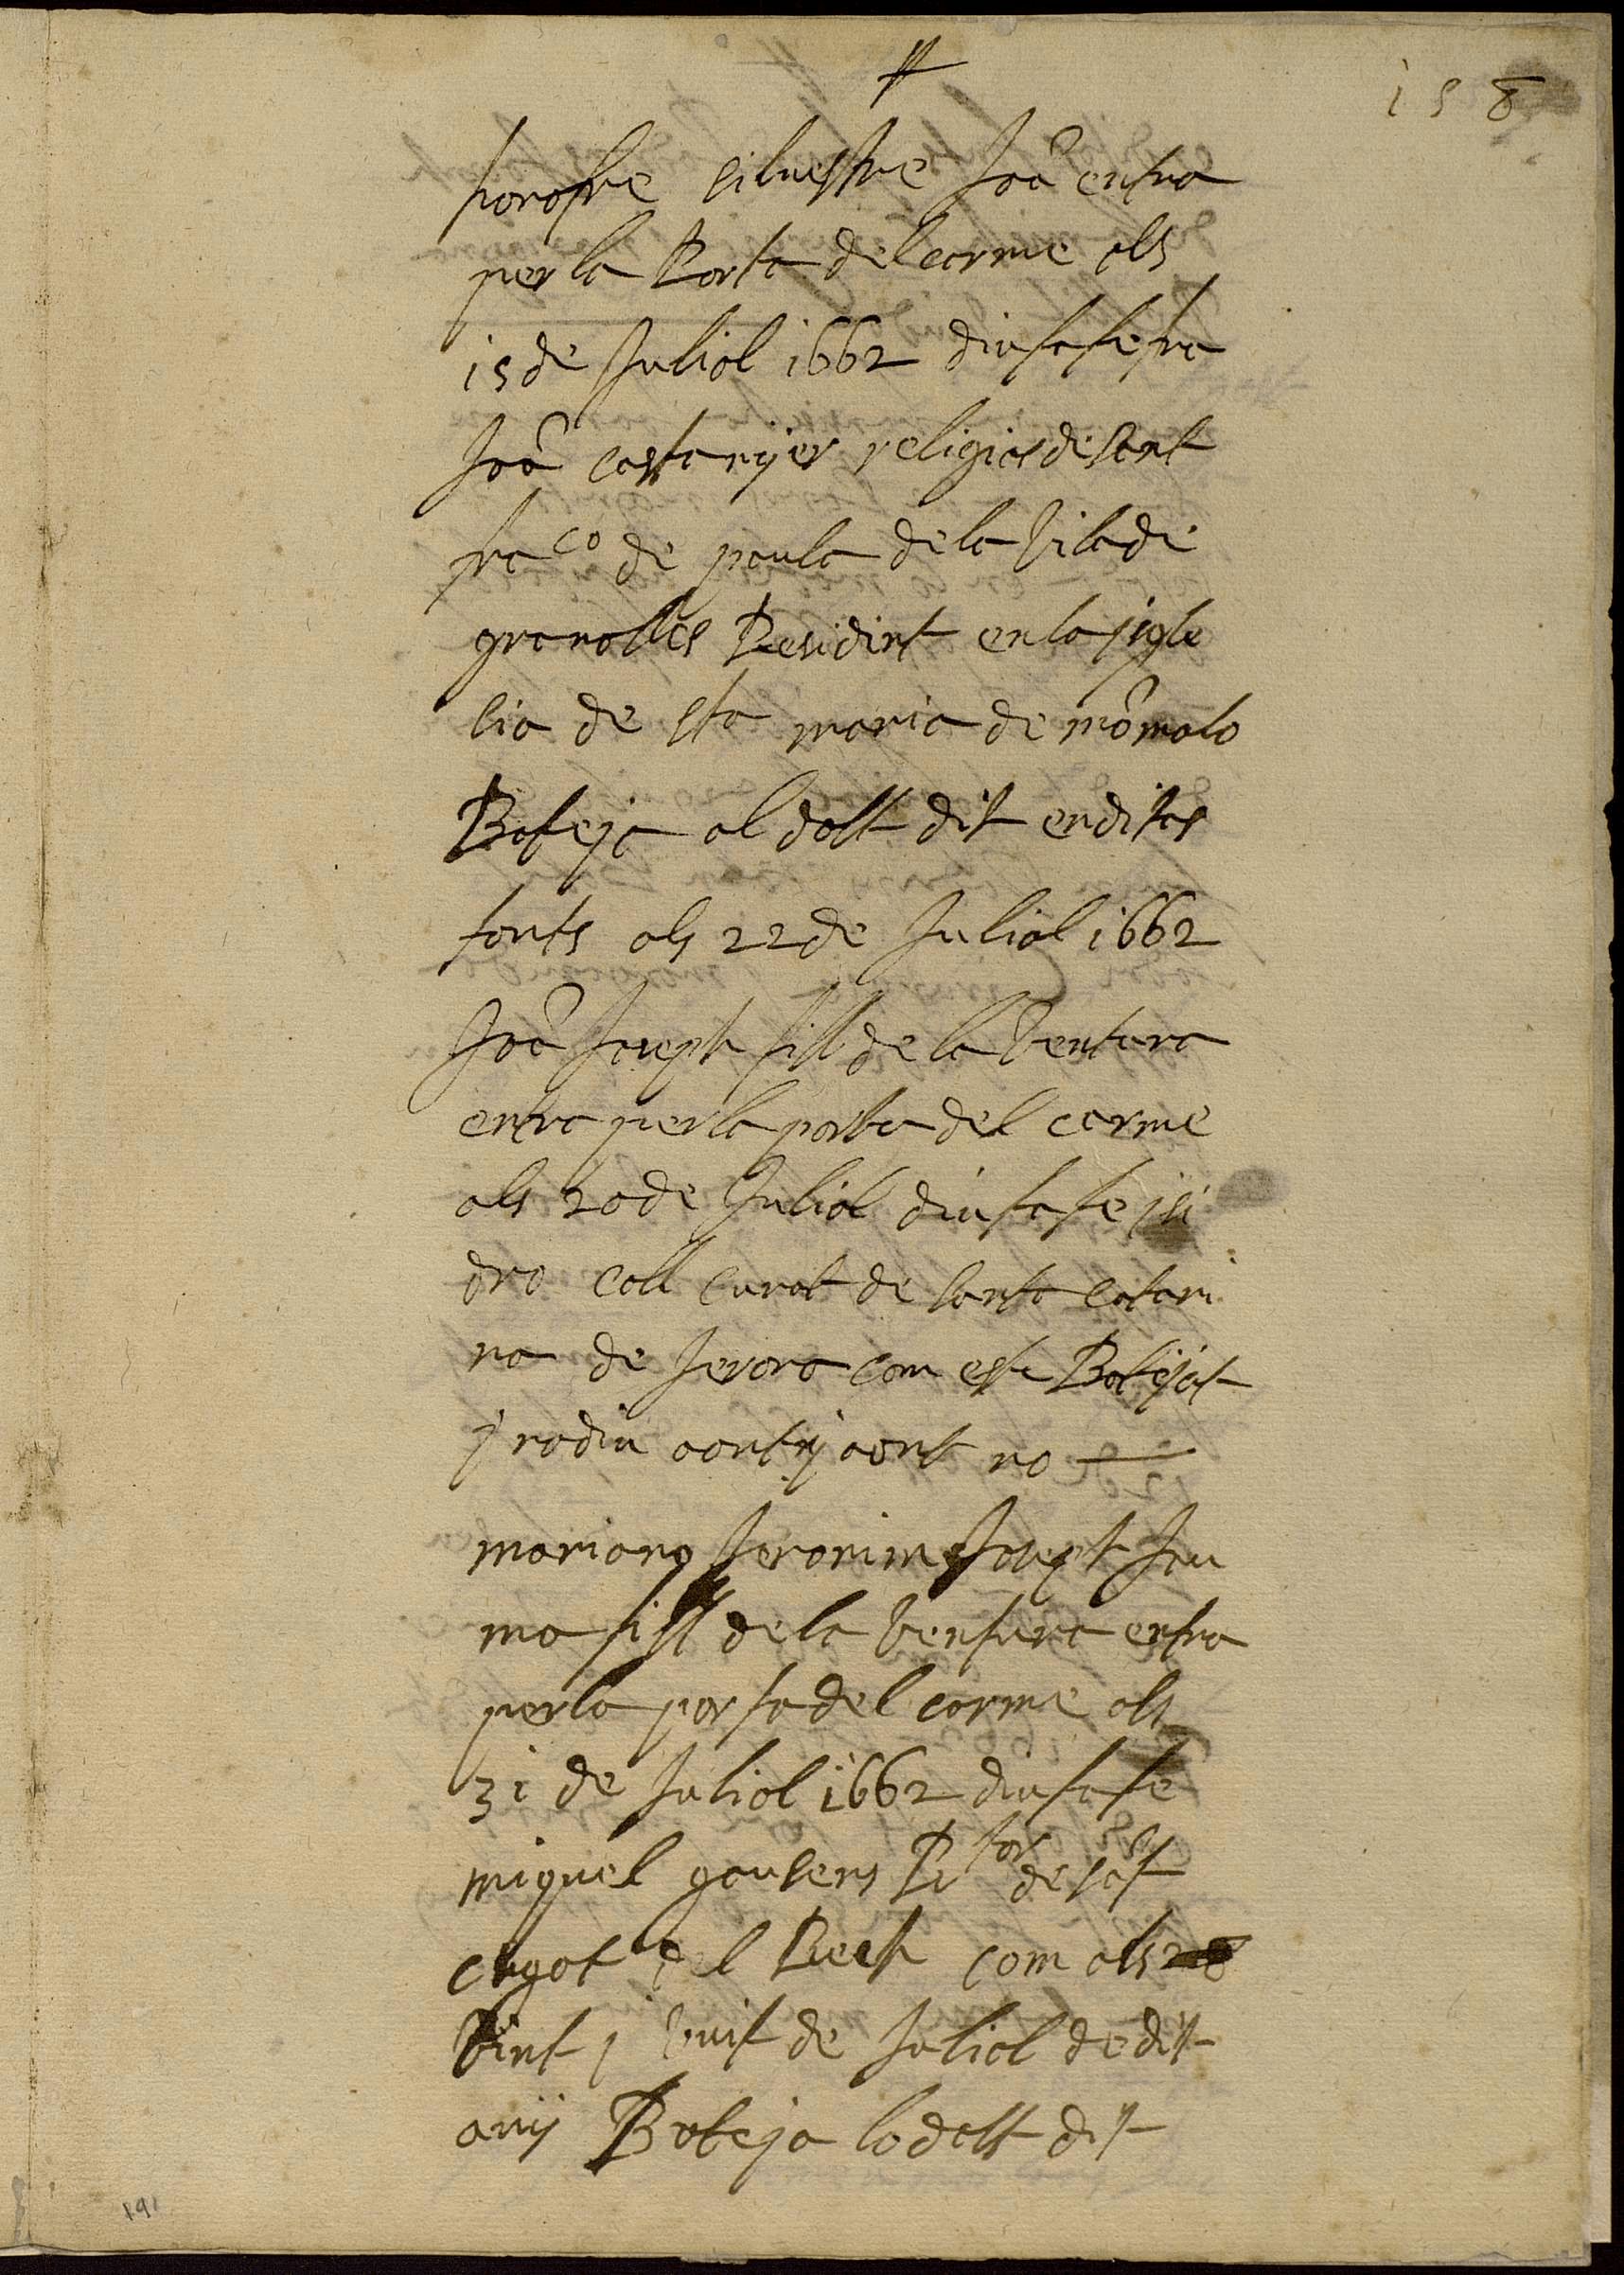 158
honofre siluestre Joâ entra
per la Porta del carme als
15 de Juliol 1662 diu fa fe fra
Joâ castanÿer religios de sant
fraco de paula de la Vila de
granolles Residint en la jgle
sia de sta maria de mômalo
Bateja al dalt dit en ditas
fonts als 22 de Juliol 1662
Joâ Joseph fill de la Ventura
entra per la porta del carme
als 20 de Juliol diu fa fe jsi
dro coll curat de santa catari
na de Jerona com esta Batejat
j nodiu aont ÿ cont no
mariano Jeronim Joseph Jau
ma fill de la Ventura entra
per la porta del carme als
31 de Juliol 1662 diu fa fe
miquel gausens Rtor de sât
cugat del Rech com als 28
Vint j Vuit de Juliol de dit
anÿ Bateja lo dalt dit
191